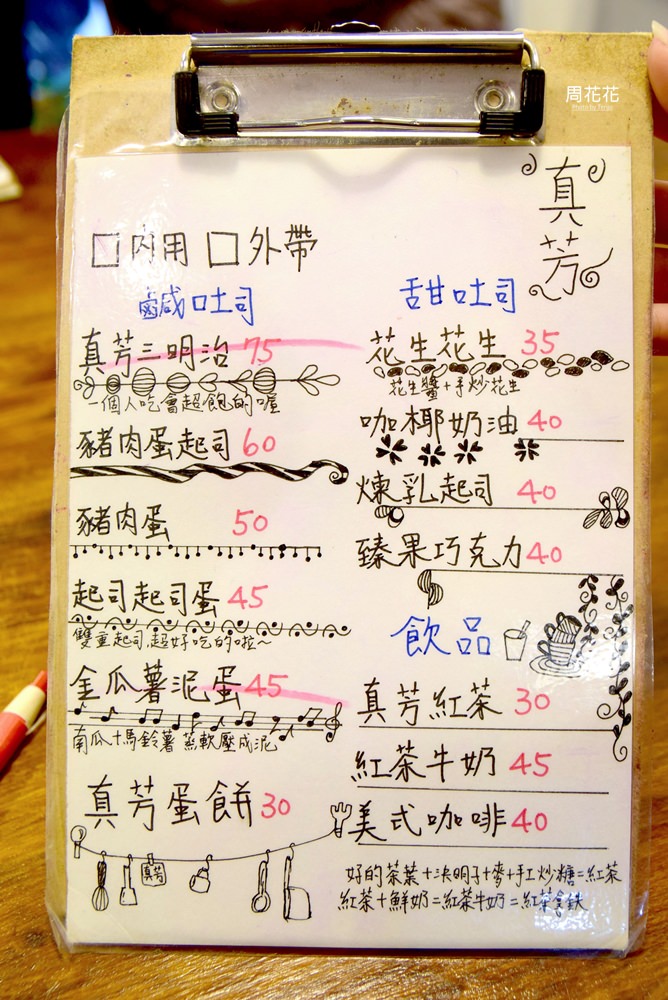 周花花
Photo by Tenjo
真芳
□內用 □外帶
鹹吐司
真芳三明治 75
一個人吃會超飽的喔
豬肉蛋起司 60
豬肉蛋 50
起司起司蛋 45
雙重起司.超好吃的啦~
金瓜薯泥蛋 45
南瓜+馬鈴薯 蒸軟壓成泥
真芳蛋餅 30
真芳
甜吐司
花生花生 35
花生醬+手炒花生
咖椰奶油 40
煉乳起司 40
臻果巧克力 40
飲品
真芳紅茶 30
紅茶牛奶 45
美式咖啡 40
好的茶葉+決明子+麥+手工炒糖=紅茶
紅茶+鮮奶=紅茶牛奶=紅茶拿鐵